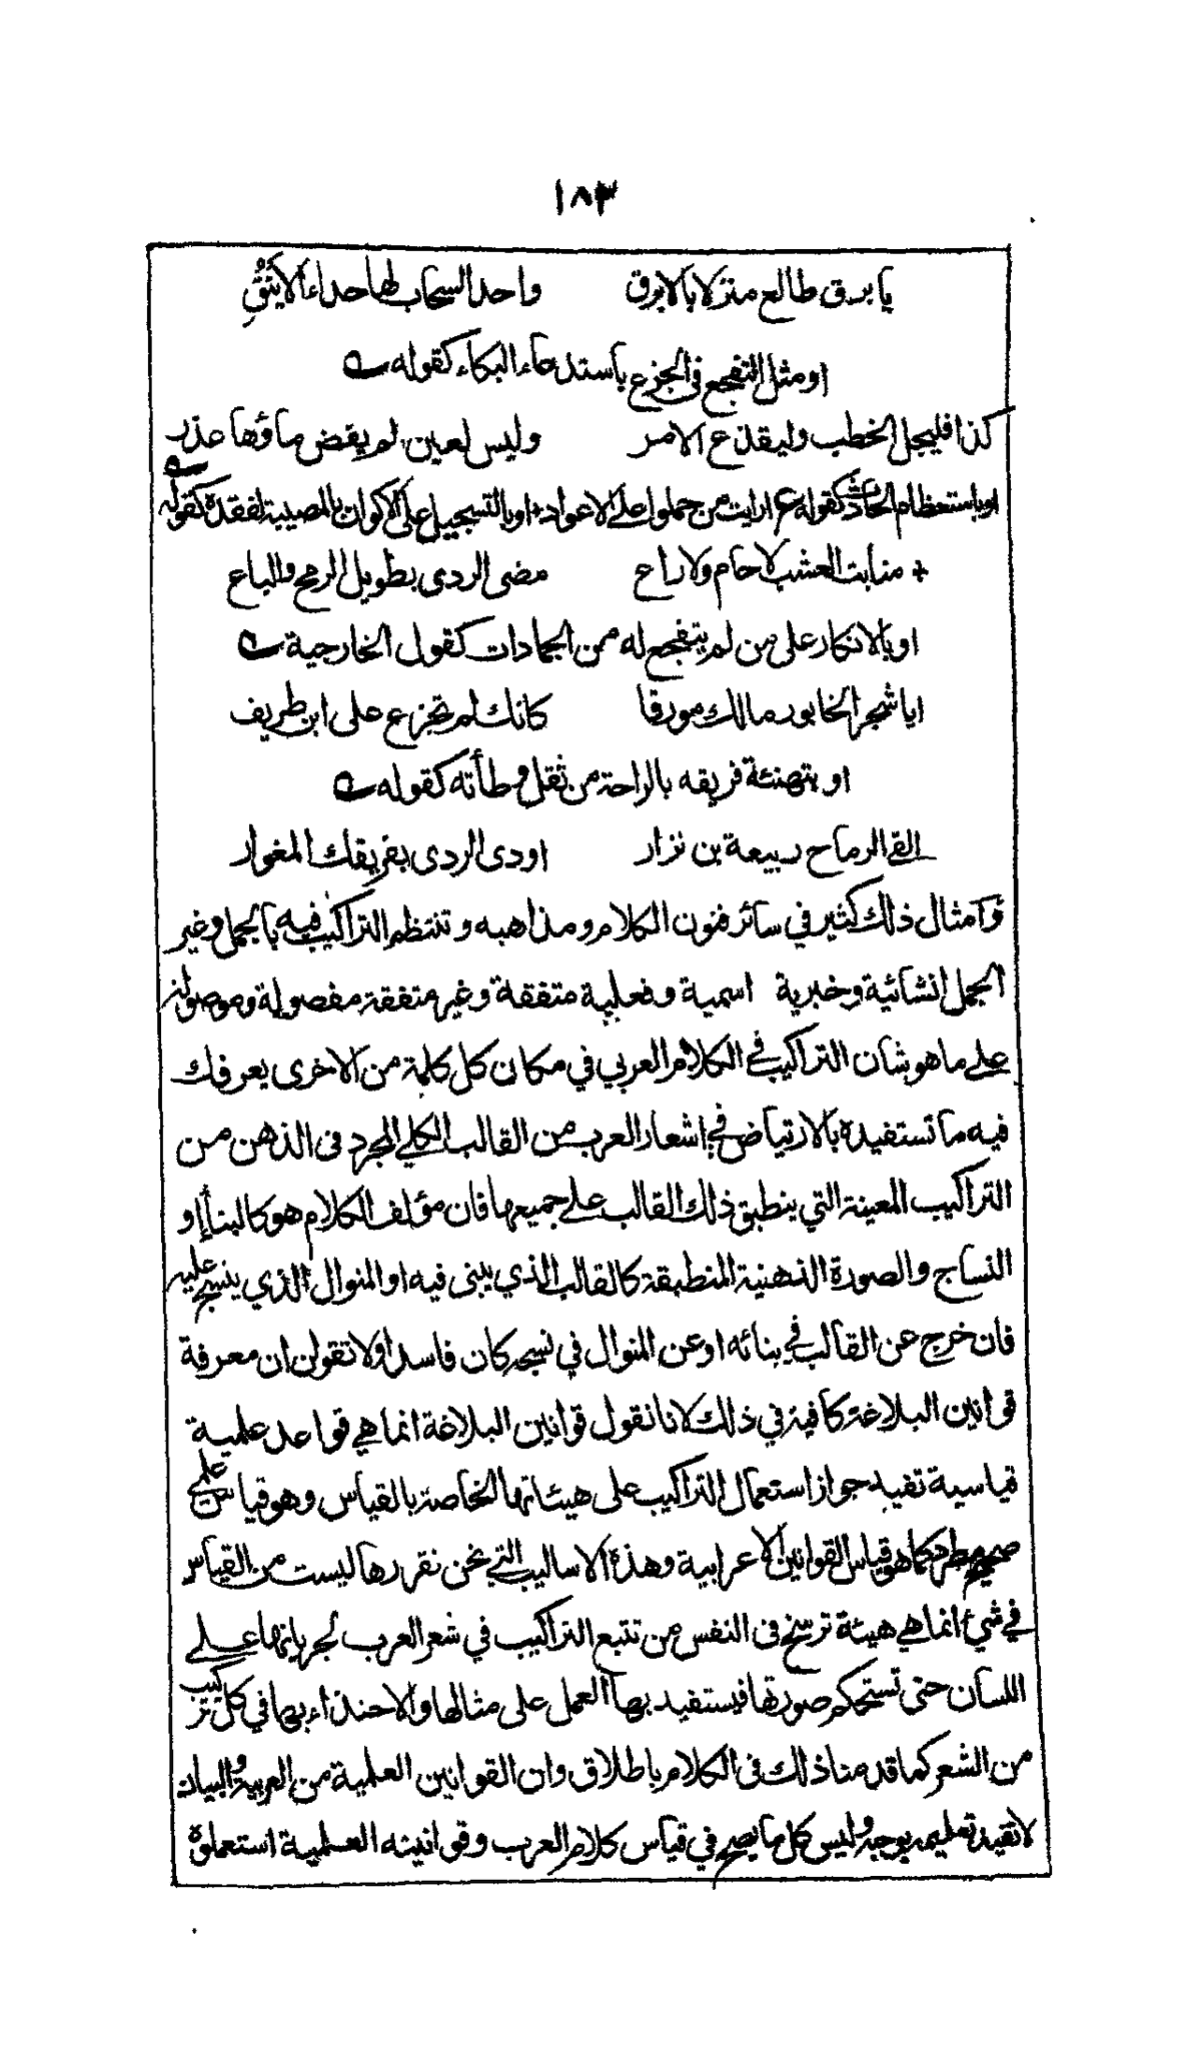 ١٨٣
يا برق طالع منزلا بالابرق واحد السحاب لها حداء الاينق
او مثل التفجع فى الجزع باستدعاء البكاء كقوله
كذا فليجل الخطب وليفدع الامر وليس لعين لم يفض ماؤها عذر
او باستعظام الحادث كقوله ع ارايت من حملوا على الاعواد + او بالتسجيل على الاكوان بالمصيبة لفقده كقوله
+ منابت العشب لا حام ولا راع مضى الردى بطويل الرمح والباع
او بالانكار على من لم يتفجع له من الجمادات كقول الخارجية
ايا شجر الخابور مالك مورقا كانك لم تجزع على ابن طريف
او بتهنئة فريقه بالراحة من ثقل وطأته كقوله
القى الرماح ربيعة بن نزار اودى الردى بفريقك المغوار
وامثال ذلك كثير في سائر فنون الكلام ومذاهبه وتنتظم التراكيب فيه بالجمل وغير
الجمل انشائية وخبرية اسمية وفعلية متفقة وغير متفقة مفصولة وموصولة
على ما هو شان التراكيب في الكلام العربي في مكان كل كلمة من الاخرى يعرفك
فيه ما تستفيده بالارتياض في اشعار العرب من القالب الكلي المجرد فى الذهن من
التراكيب المعينة التي ينطبق ذلك القالب على جميعها فان مؤلف الكلام هو كالبنأ او
النساج والصورة الذهنية المنطبقة كالقالب الذي يبنى فيه او المنوال الذي ينسج عليه
فان خرج عن القالب في بنائه او عن المنوال في نسجه كان فاسدا ولا تقولن ان معرفة
قوانين البلاغة كافية في ذلك لانا نقول قوانين البلاغة انما هي قواعد علمية
قياسية تفيد جواز استعمال التراكيب على هيئاتها الخاصة بالقياس وهو قياس علمي
صحيح مطرد كما هو قياس القوانين الاعرابية وهذه الاساليب التي نحن نقررها ليست من القياس
في شيء انما هي هيئة ترسخ فى النفس من تتبع التراكيب في شعر العرب لجريانها على
اللسان حتى تستحكم صورتها فيستفيد بها العمل على مثالها والاحتذاء بها في كل تركيب
من الشعر كما قدمنا ذلك فى الكلام باطلاق وان القوانين العلمية من العربية والبيان
لا تفيد تعليمه بوجه وليس كل ما يصح في قياس كلام العرب وقوانينه العلمية استعملوه